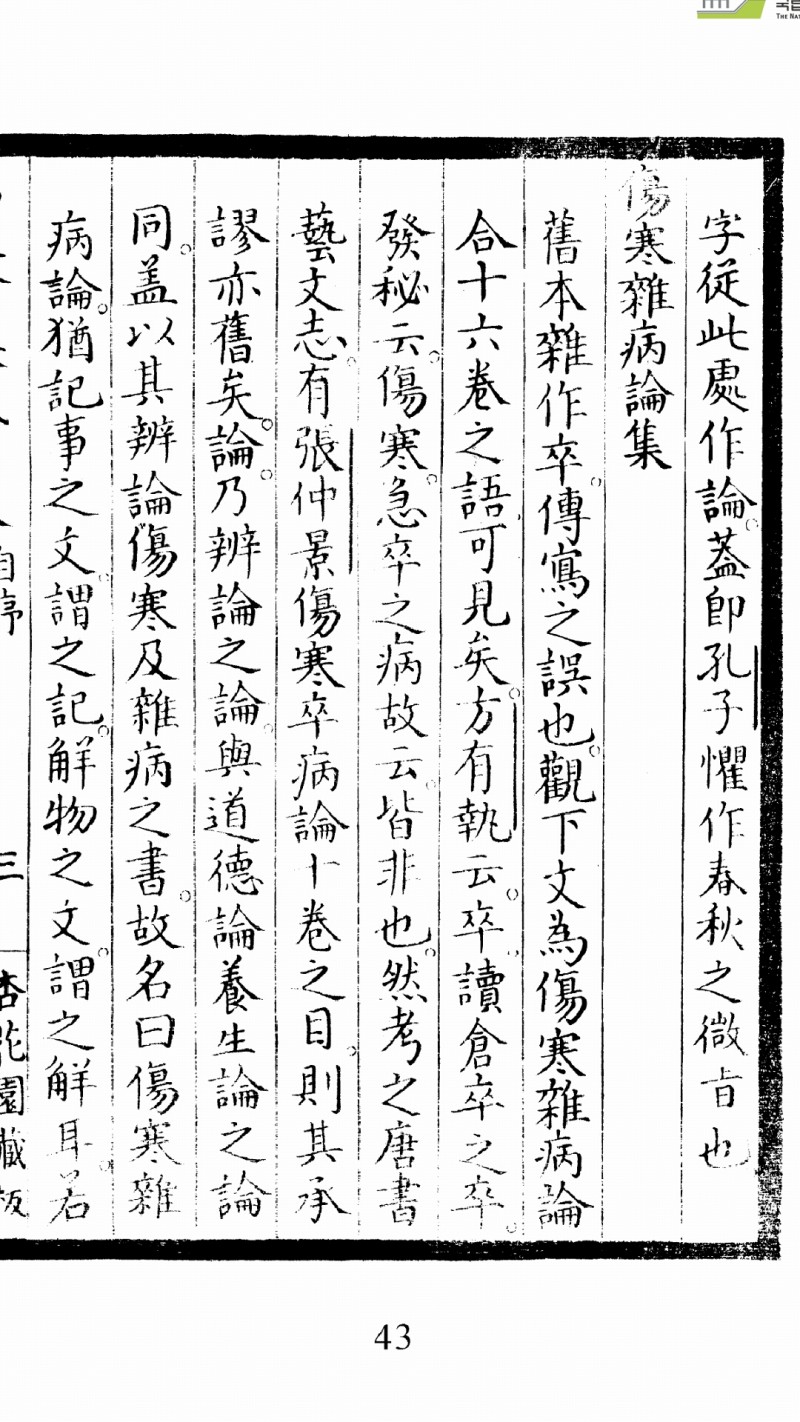 字從此處作論蓋卽孔子懼作春秋之微旨也
傷寒雜病論集
舊本雜作卒傳寫之誤也觀下文為傷寒雜病論
合十六卷之語可見矣方有執云卒讀倉卒之卒
發秘云傷寒急卒之病故云皆非也然考之唐書
藝文志有張仲景傷寒卒病論十卷之目則其承
謬亦舊矣論乃辨論之論與道德論養生論之論
同蓋以其辨論傷寒及雜病之書故名曰傷寒雜
病論猶記事之文謂之記解物之文謂之解耳若
自序
三
杏花園藏板
43
THE NAT